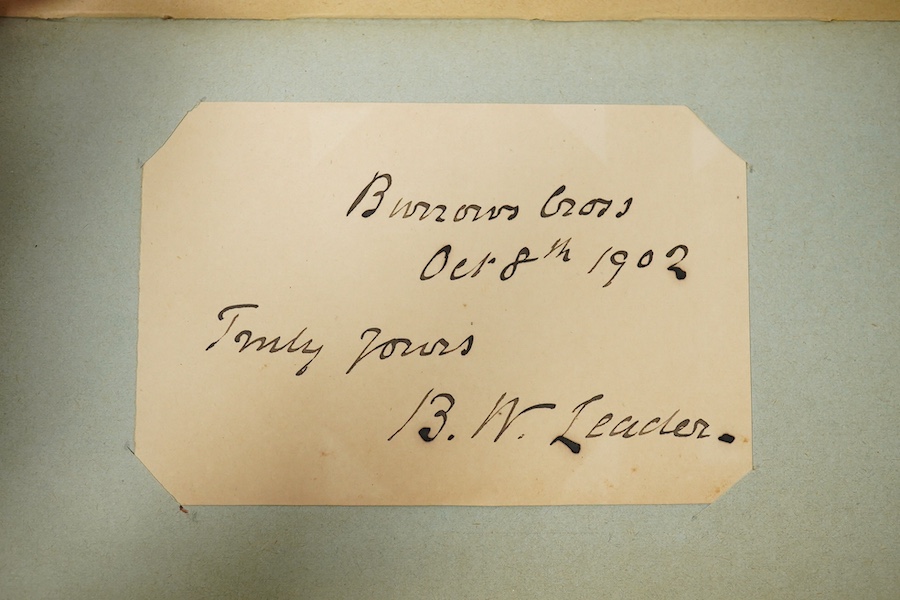 Burrows Cross
Oct 8th 1902
Truly yours
B. W. Leader.